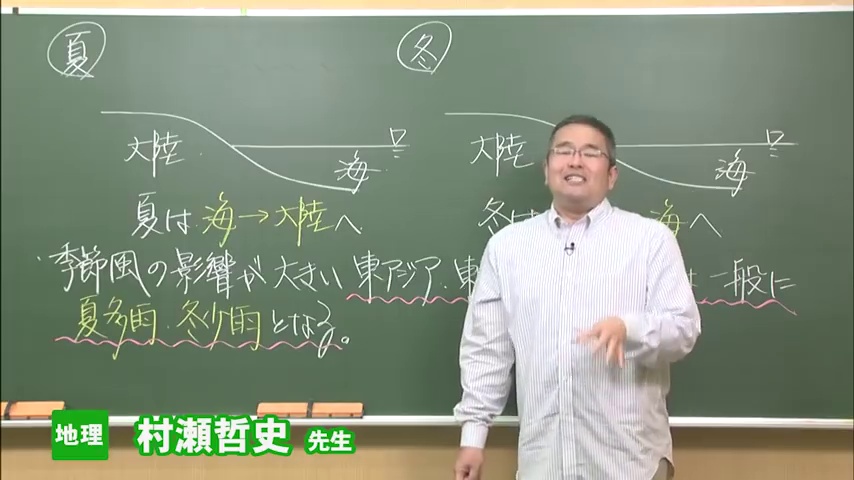 夏
冬
大陸
海
大陸
海
夏は 海→大陸へ
冬は 海へ
季節風の影響が大きい 東アジア・東 は一般に
夏多雨・冬少雨となる。
地理 村瀬哲史 先生